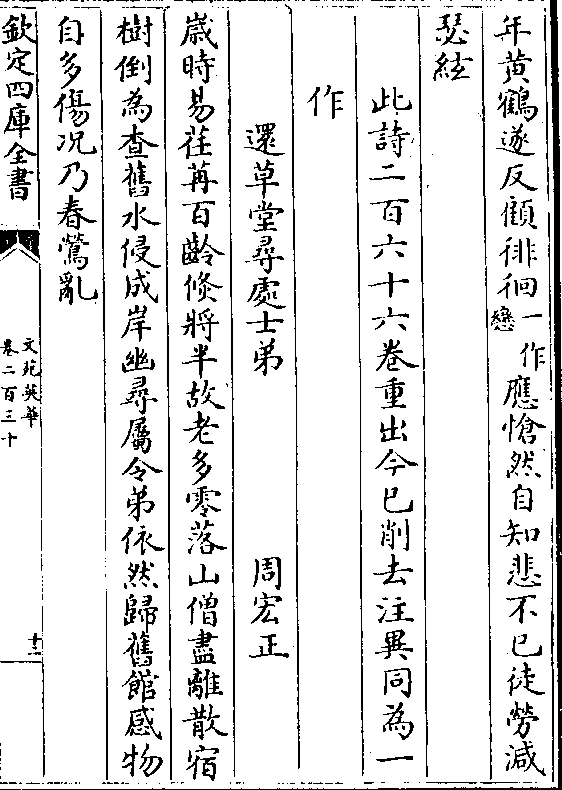 年黄鶴遂反顧徘徊一作戀應愴然自知悲不已徒勞減
瑟絃
此詩二百六十六卷重出今已削去注異同為一
作
還草堂尋處士弟 周宏正
嵗時易荏苒百齡倐將半故老多零落山僧盡離散宿
樹倒為查舊水侵成岸幽尋屬令弟依然歸舊館感物
自多傷况乃春鶯亂
欽定四庫全書
文苑英華
卷二百三十
十二